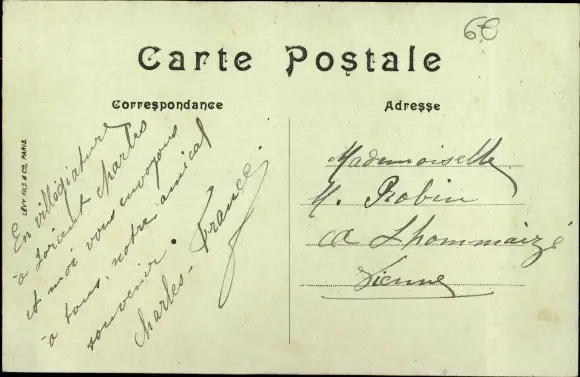 6€
Carte Postale
Correspondance
Adresse
LÉVY FILS & CIE, PARIS.
En villégiature
à Lorient Charles
et moi vous envoyons
à tous, notre amical
souvenir.
Charles - France.
Mademoiselle
M. Robin
à Lhommaizé
Vienne